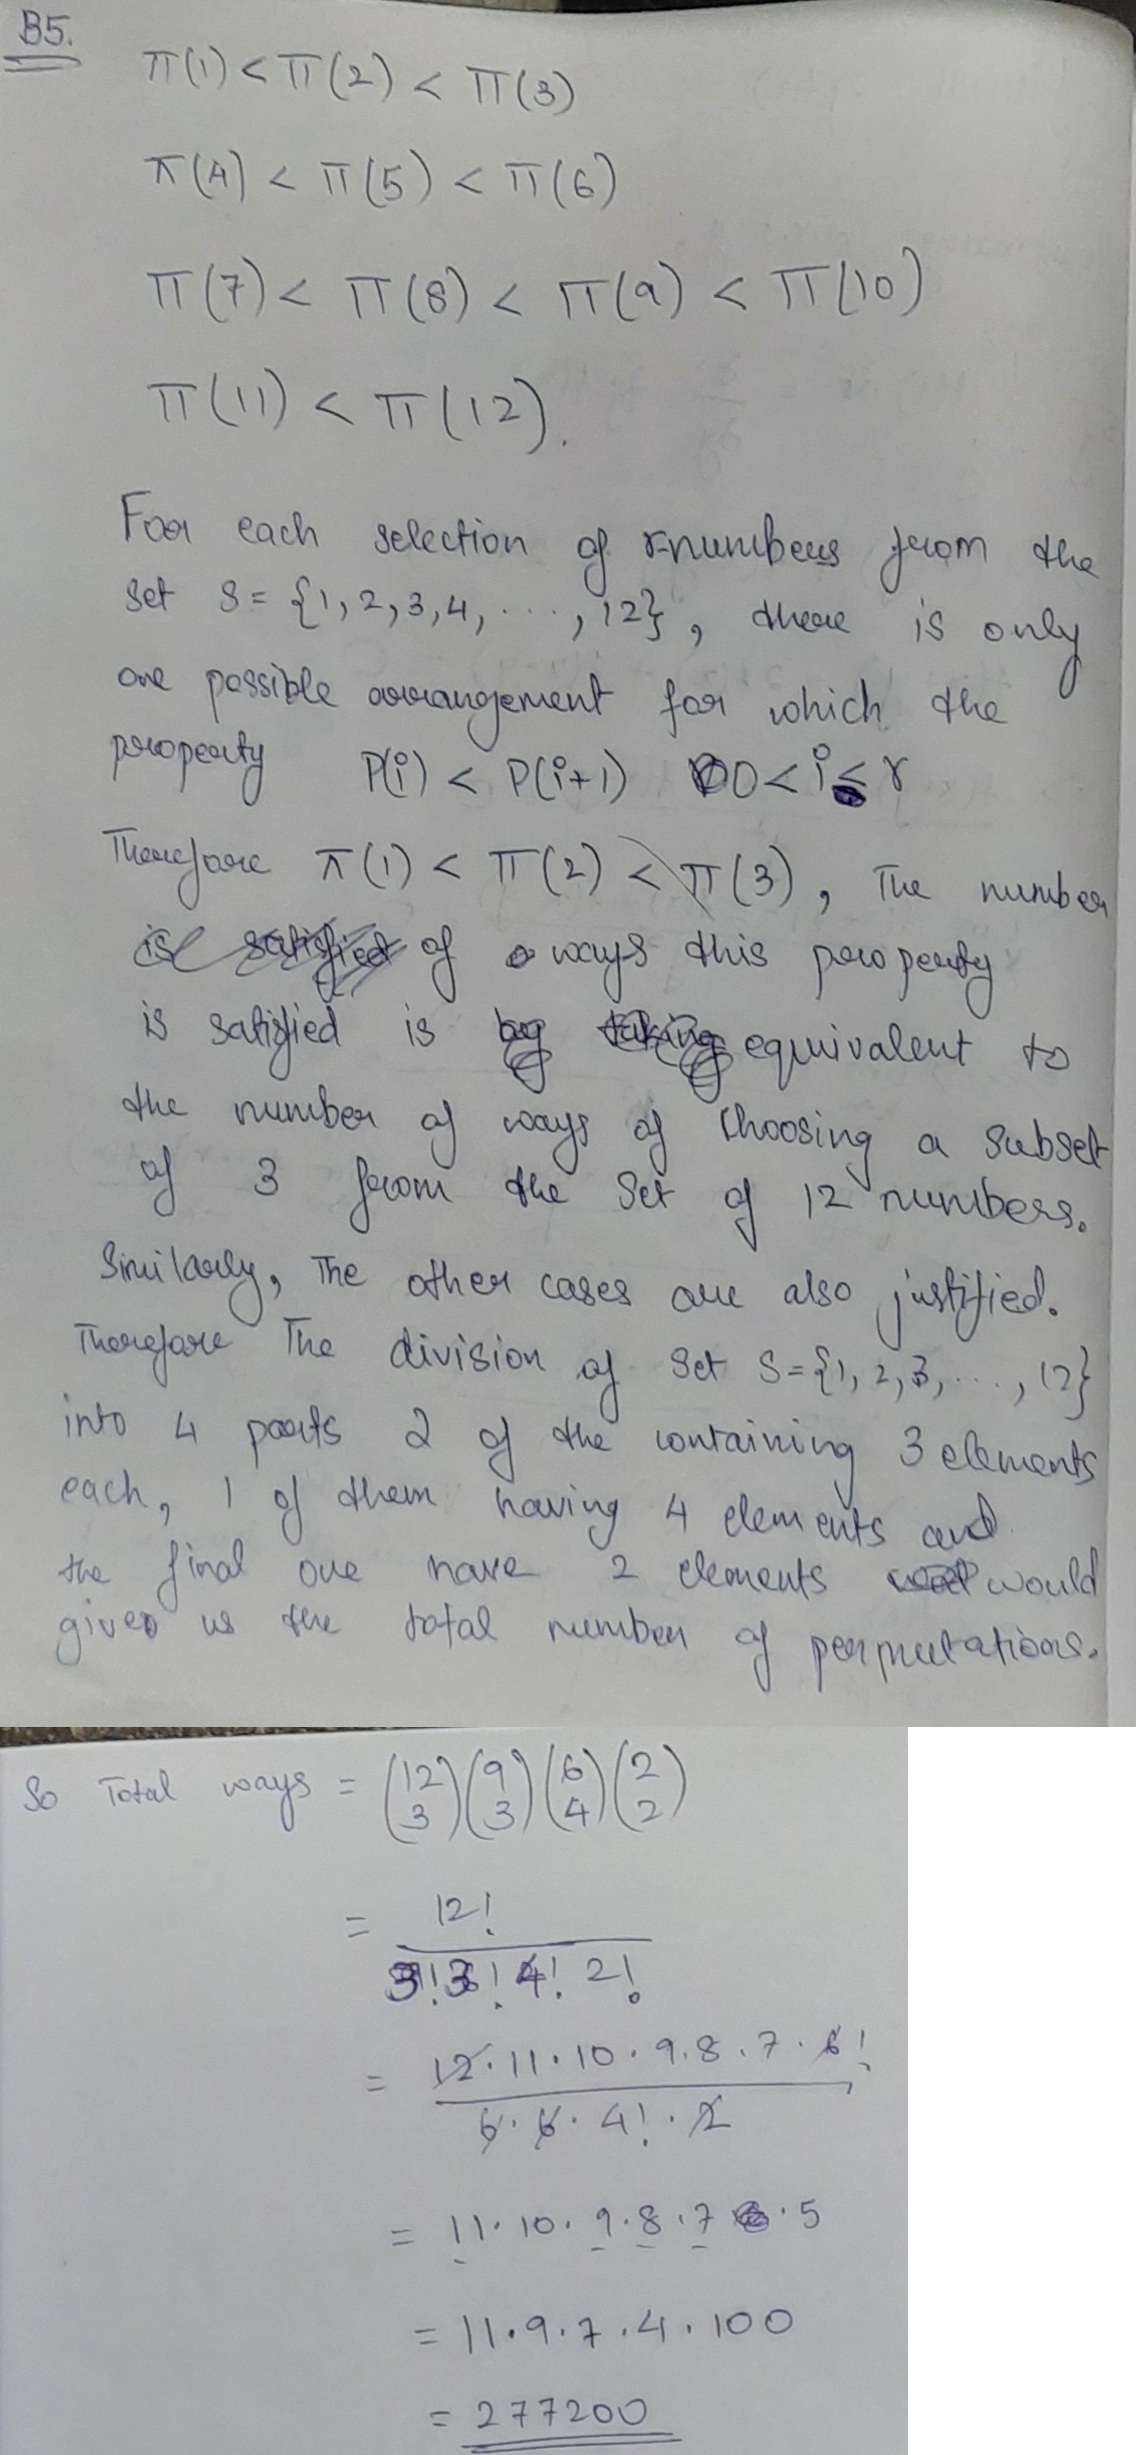 B5.
π(1) < π(2) < π(3)
π(4) < π(5) < π(6)
π(7) < π(8) < π(9) < π(10)
π(11) < π(12).
For each selection of r-numbers from the
set S = {1, 2, 3, 4, ..., 12}, there is only
one possible arrangement for which the
property P(i) < P(i+1) 0 < i ≤ r
Therefore π(1) < π(2) < π(3), The number
is satisfied of ways this property
is satisfied is by taking equivalent to
the number of ways of choosing a subset
of 3 from the set of 12 numbers.
Similarly, The other cases are also justified.
Therefore The division of set S = {1, 2, 3, ..., 12}
into 4 parts 2 of the containing 3 elements
each, 1 of them having 4 elements and
the final one have 2 elements would
gives us the total number of permutations.
So Total ways = (12 3)(9 3)(6 4)(2 2)
= 12! / 3! 3! 4! 2!
= 12 · 11 · 10 · 9 · 8 · 7 · 6! / 6 · 6 · 4! · 2
= 11 · 10 · 9 · 8 · 7 · 5
= 11 · 9 · 7 · 4 · 100
= 277200